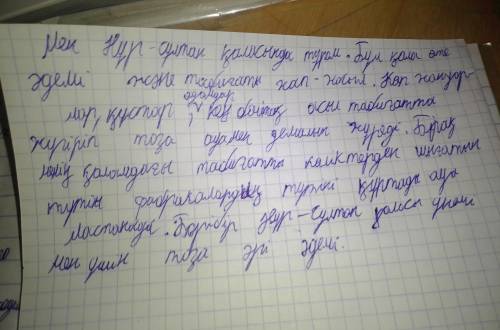 Мен Нұр-сұлтан қаласында тұрам. Бұл қала өте
әдемі және табиғаты жап-жасыл. Көп жануар-
адамдар
лар, құстар, осы табиғатта
жүгіріп таза ауамен демалып жүреді. Бірақ
менің қаламдағы табиғатты көліктерден шығатын
түтін фабрикалардың түтіні құртады ауа
ластанады. Бәрібір Нұр-Сұлтан қаласы үнемі
мен үшін таза әрі әдемі.